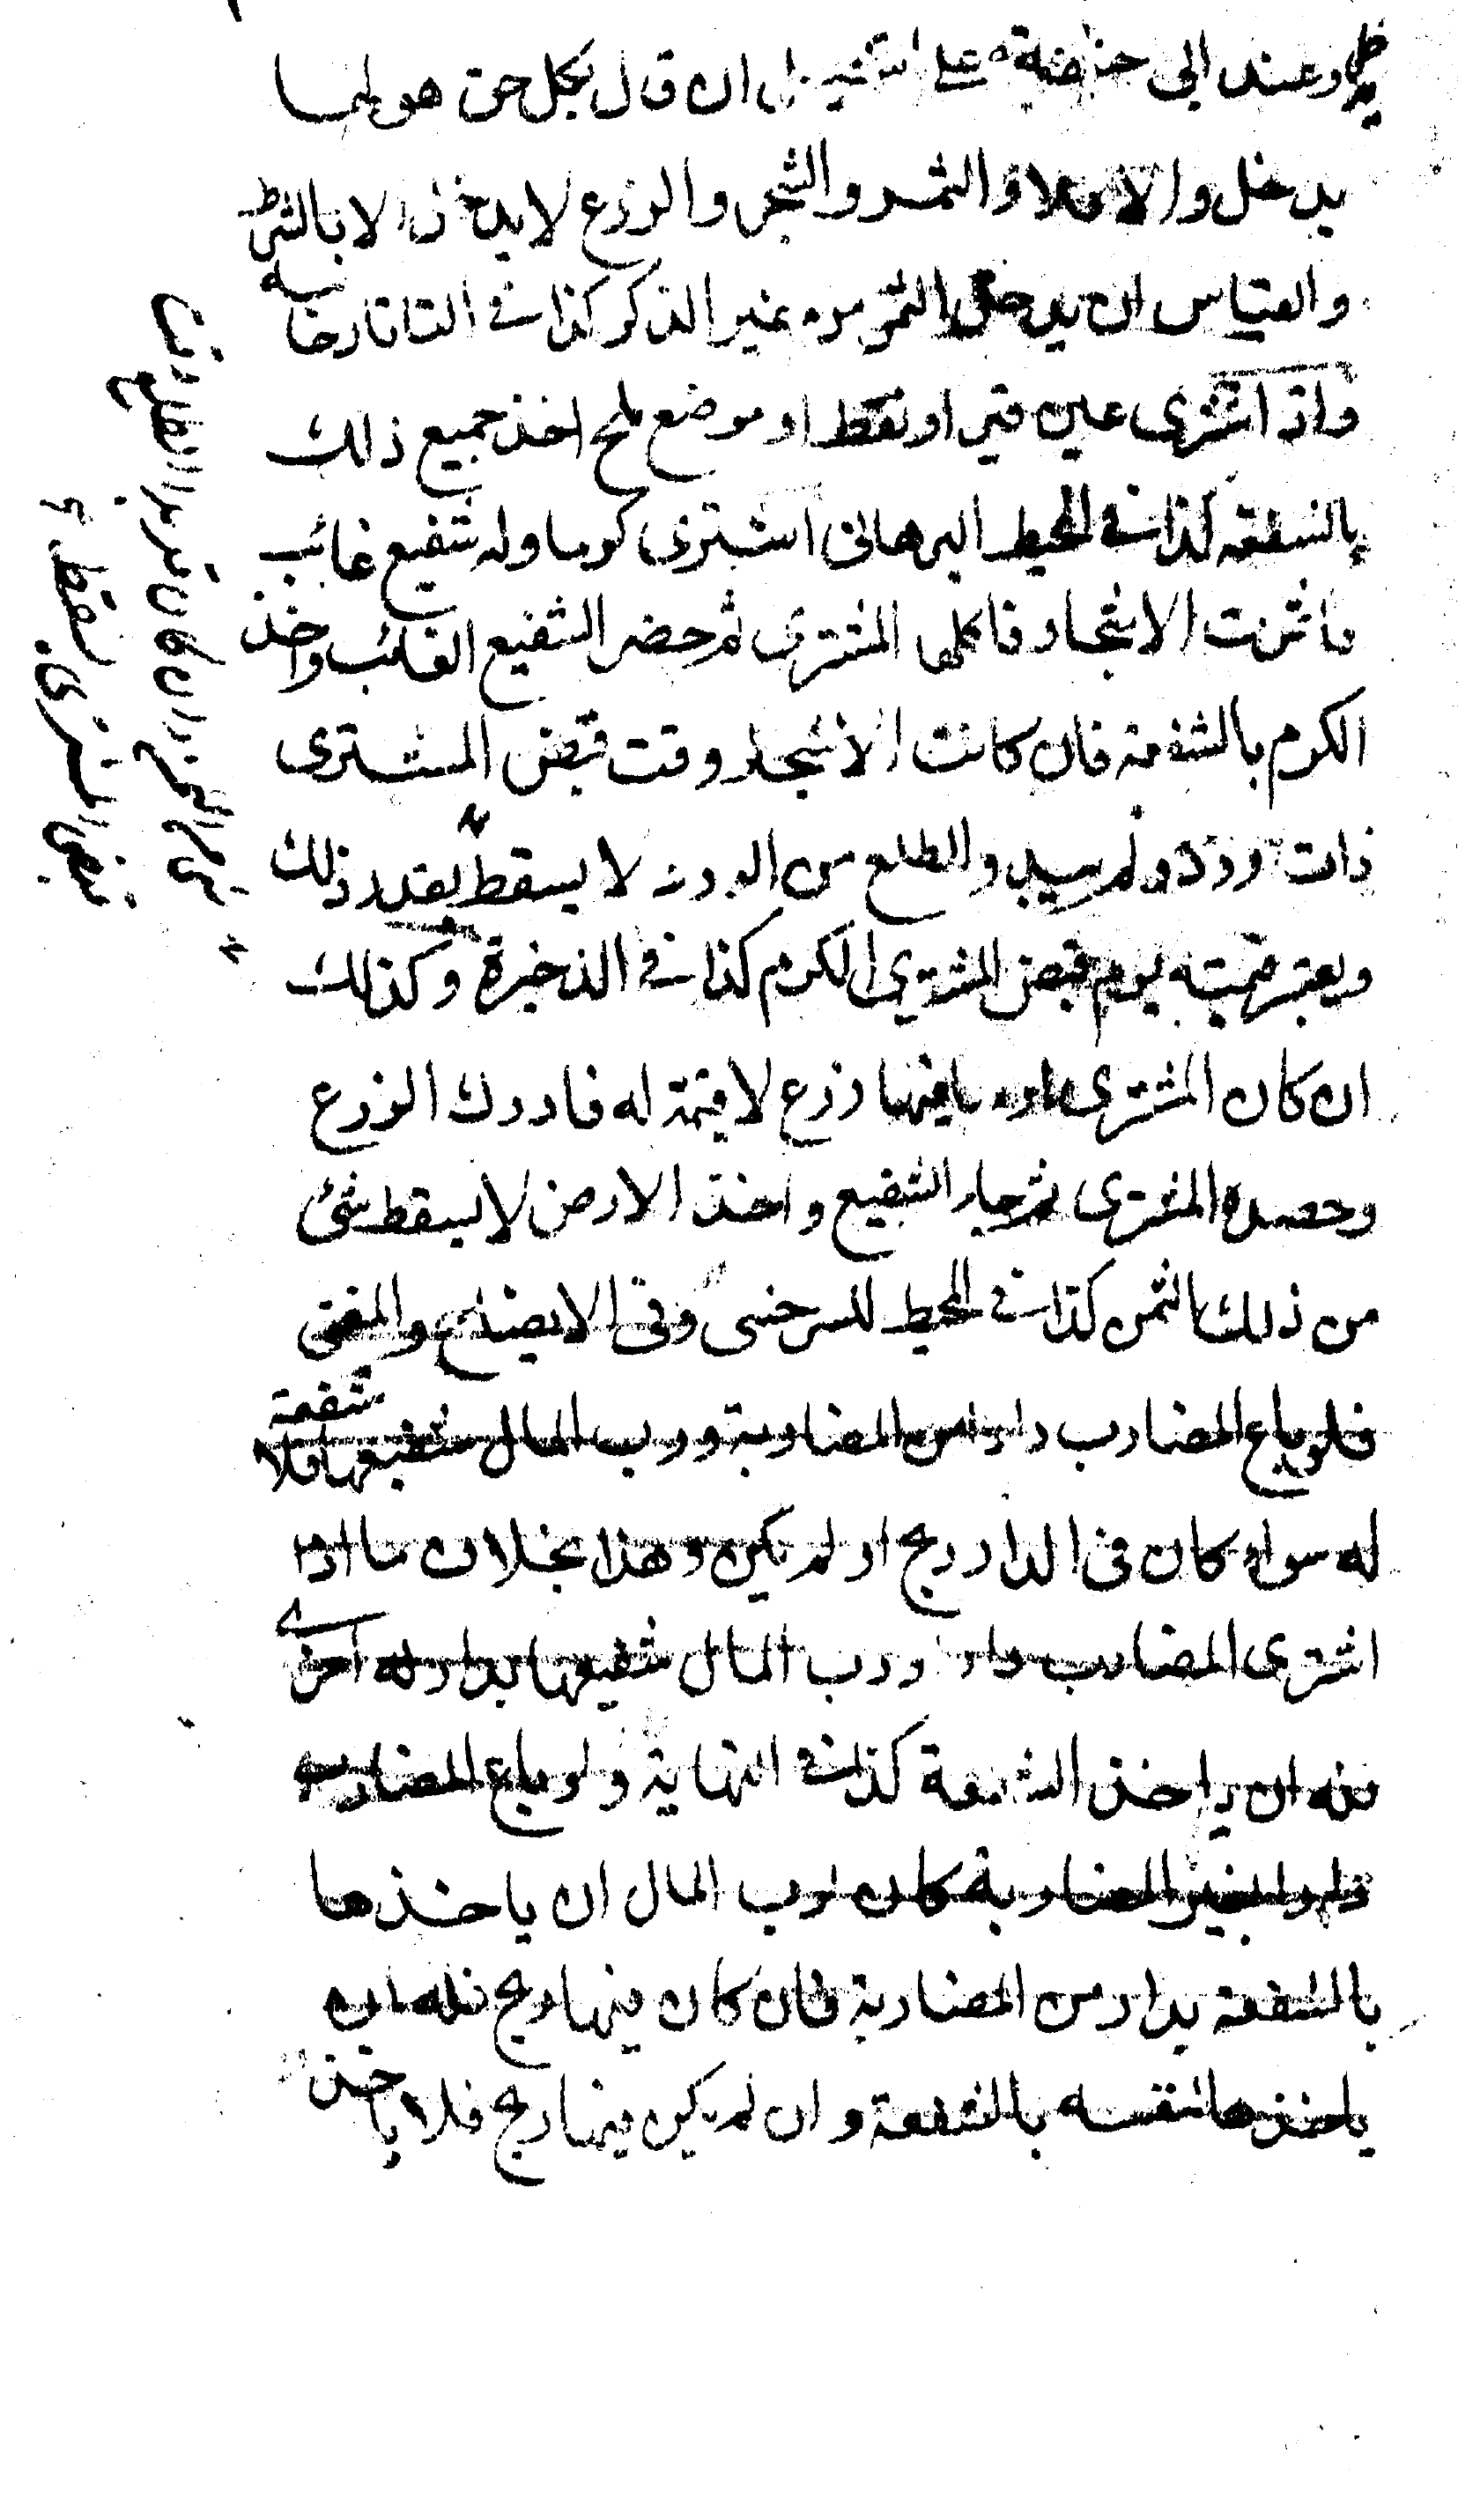 وعند ابى حنيفة على ان قال بكل حق هو لها
يدخل والا فلا والثمر والشجر والزرع لا يدخل الا بالشرط
والقياس ان يدخل الثمر من غير الذكر كذا فى التاتارخانيه
واذا اشترى عين قير او نفط او موضع ملح اخذ جميع ذلك
بالشفعة كذا فى المحيط البرهانى اشترى كرما وله شفيع غائب
فاثمرت الاشجار فاكلها المشترى ثم حضر الشفيع الغائب واخذ
الكرم بالشفعة فان كانت الاشجار وقت قبض المشترى
ذات ورد ولم يبد الطلع من الورد لا يسقط بقدر ذلك
ويعتبر قيمته يوم قبض المشترى الكرم كذا فى الذخيرة وكذلك
ان كان المشترى ارضا فيها زرع لا قيمة له فادرك الزرع
وحصده المشترى ثم جاء الشفيع واخذ الارض لا يسقط شئ
من ذلك الثمن كذا فى المحيط للسرخسى وفى الايضاح والمغنى
فلو باع المضارب دارا من المضاربة ورب المال شفيعها فلا شفعة
له سواء كان فى الدار ربح او لم يكن وهذا بخلاف ما اذا
اشترى المضارب دارا ورب المال شفيعها بدار له اخرى
فله ان ياخذ الشفعة كذا فى النهاية ولو باع المضارب
دارا بغير المضاربة كان لرب المال ان ياخذها
بالشفعة بدار من المضاربة فان كان فيها ربح فله ان
ياخذها لنفسه بالشفعة وان لم يكن فيها ربح فلا ياخذ